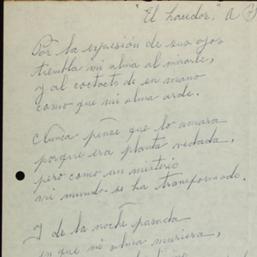 "El hacedor", A
Por la expresión de sus ojos
tiembla mi alma al mirarte,
y al contacto de su mano
como que mi alma arde.
Nunca pensé que lo amara
porque era planta vedada,
pero como un misterio
mi mundo se ha transformado.
Y de la noche pasada
en que mi alma muriera,